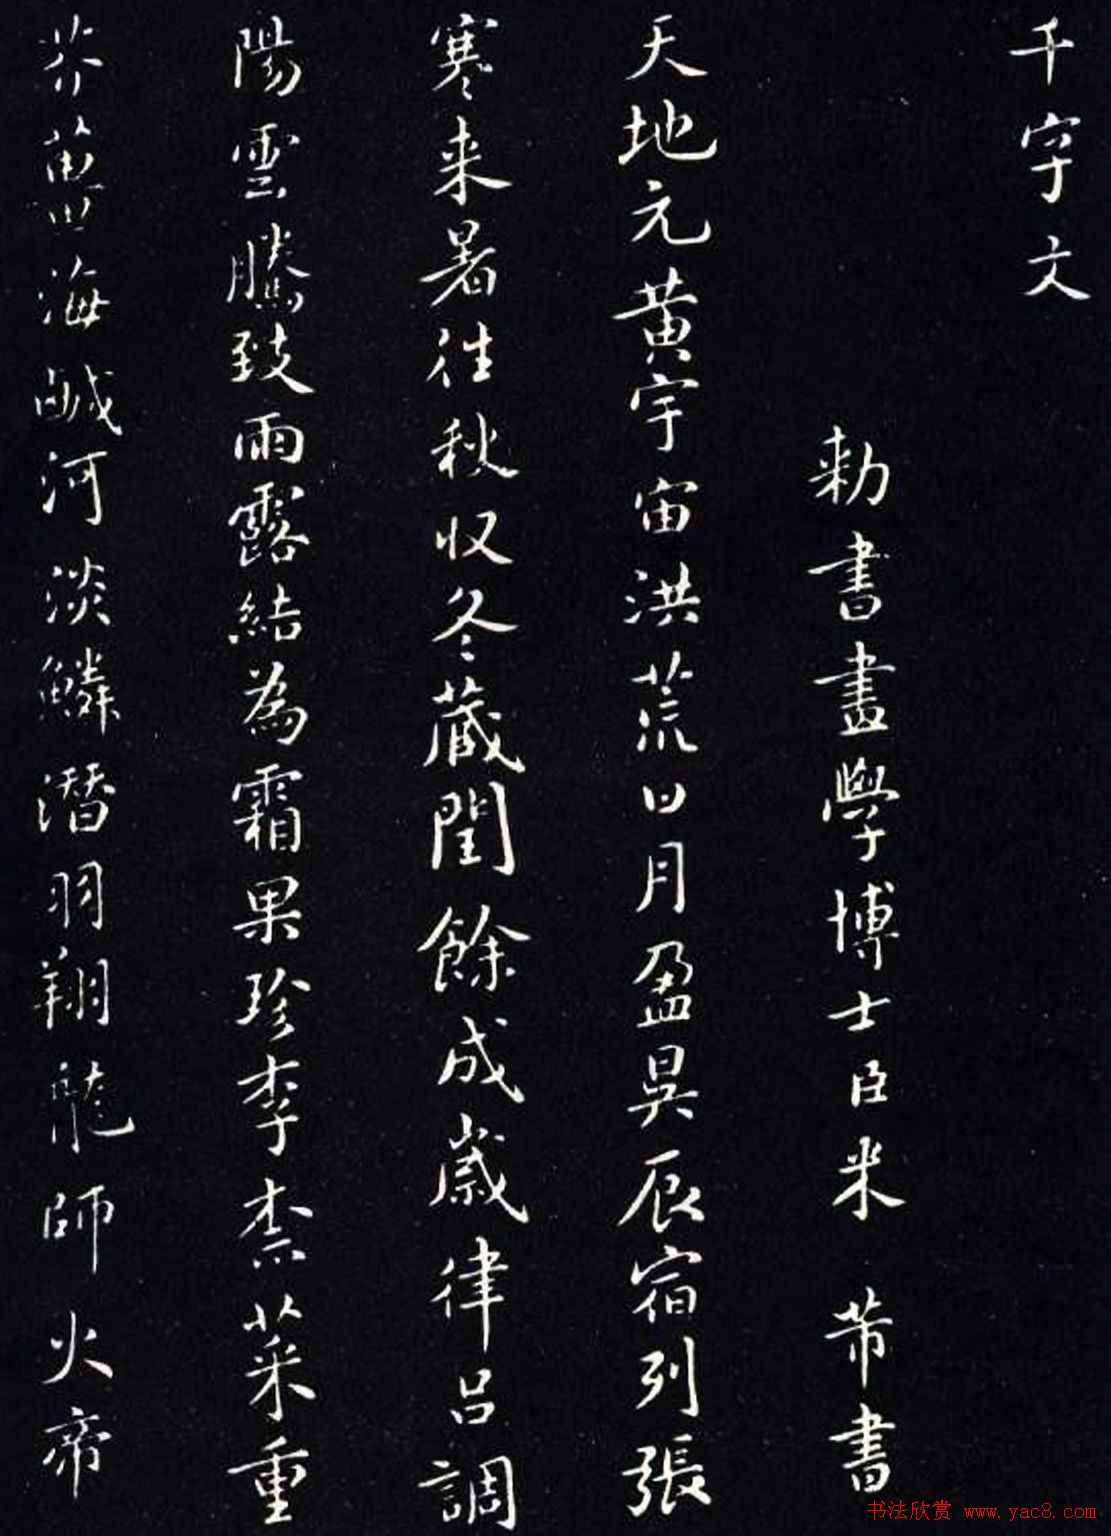 千字文
勅書畫學博士臣米芾書
天地元黄宇宙洪荒日月盈昃辰宿列張
寒来暑往秋収冬蔵閏餘成歳律呂調
陽雲騰致雨露結為霜果珍李柰菜重
芥薑海鹹河淡鱗潜羽翔龍師火帝
书法欣赏 www.yac8.com